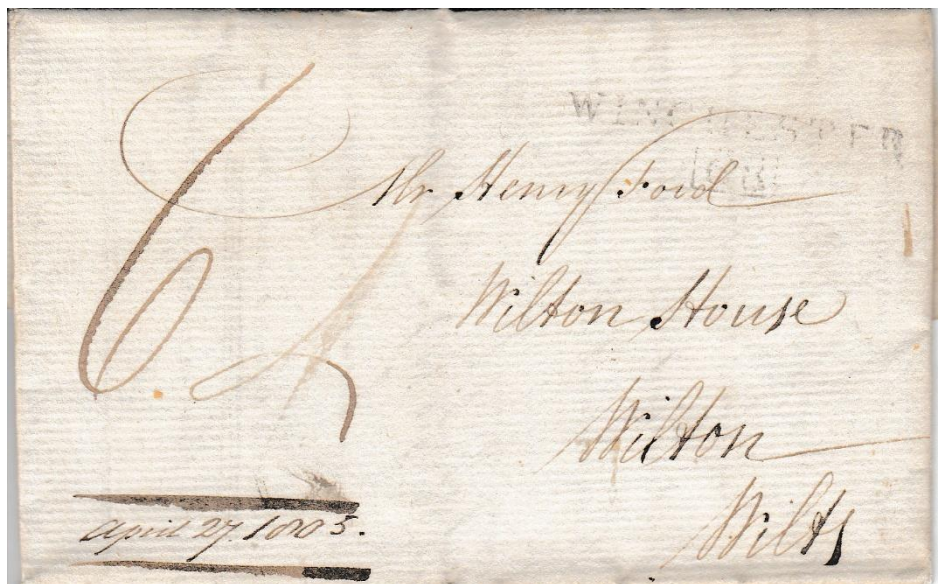 WINCHESTER
6
Mr Henry Ford
Wilton House
Wilton
Wilts
April 27. 1805.